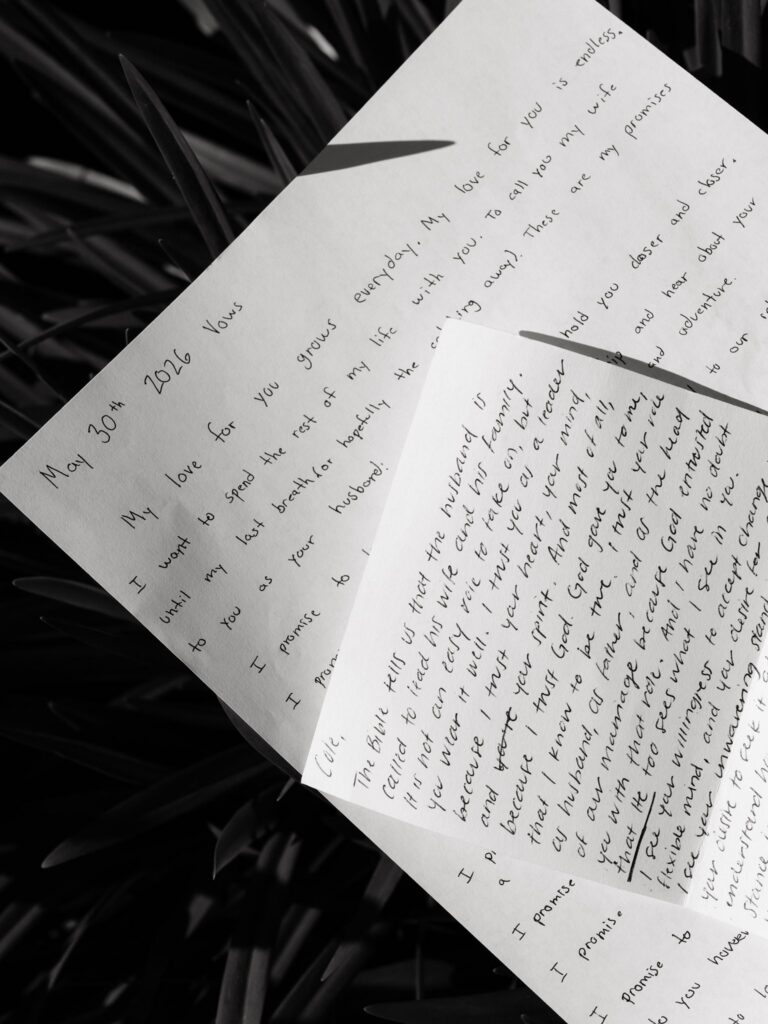 May 30th 2026 Vows
My love for you grows everyday. My love for you is endless.
I want to spend the rest of my life with you. To call you my wife
until my last breath (or hopefully the away). These are my promises
to you as your husband!
I promise to hold you closer and closer.
I and hear about your
and adventure.
to our
I
a
I promise
I promise.
I promise to
you
to
Cole,
The Bible tells us that the husband is
called to lead his wife and his family.
It is not an easy role to take on, but
you wear it well. I trust you as a leader
because I trust your heart, your mind,
and your spirit. And most of all,
because I trust God. God gave you to me,
that I know to be true. I trust your role
as husband, as father, and as the head
of our marriage because God entrusted
you with that role. And I have no doubt
that He too sees what I see in you.
I see your willingness to accept change,
flexible mind, and your desire for
I see your unwavering stand
your desire to seek it
understand
stance